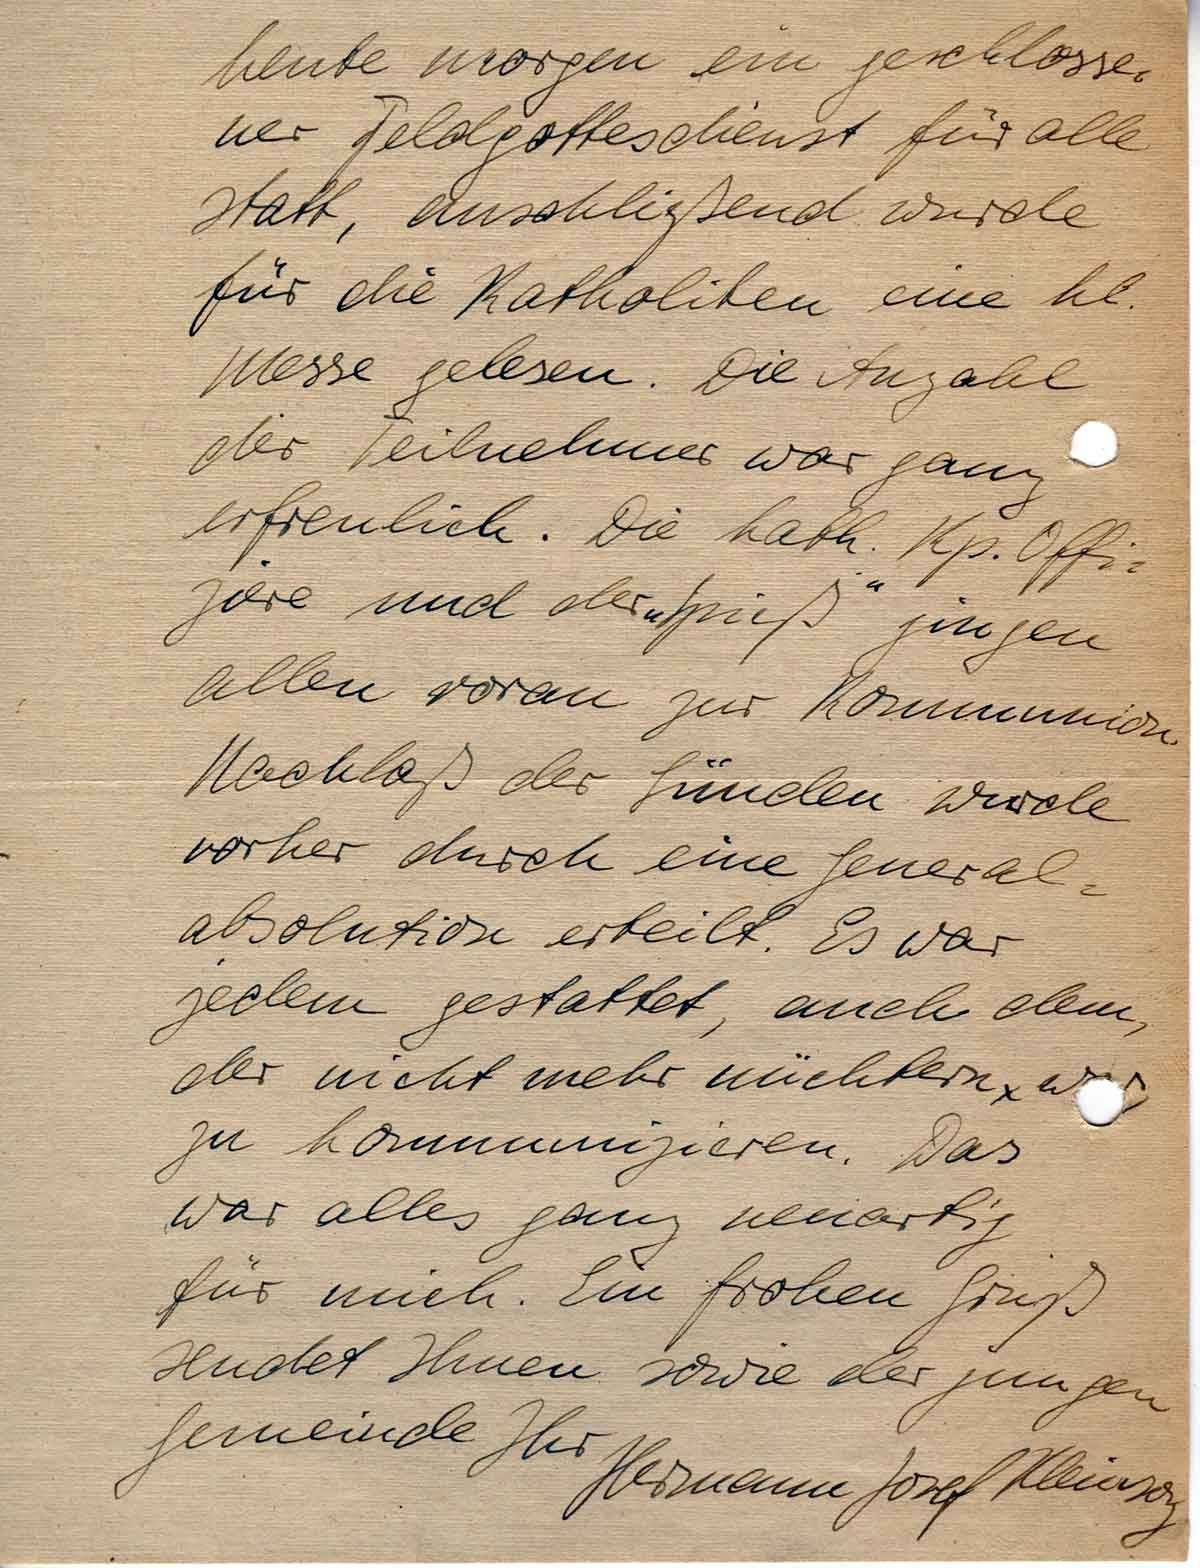 heute morgen ein geschlosse-
ner Feldgottesdienst für alle
statt, anschließend wurde
für die Katholiken eine hl.
Messe gelesen. Die Anzahl
der Teilnehmer war ganz
erfreulich. Die kath. Kp. Offi-
ziere und der „Spieß" gingen
allen voran zur Kommunion.
Nachlaß der Sünden wurde
vorher durch eine General-
absolution erteilt. Es war
jedem gestattet, auch dem,
der nicht mehr nüchtern, war
zu kommunizieren. Das
war alles ganz neuartig
für mich. Ein frohen Gruß
sendet Ihnen sowie der jungen
Gemeinde Ihr
Hermann Josef